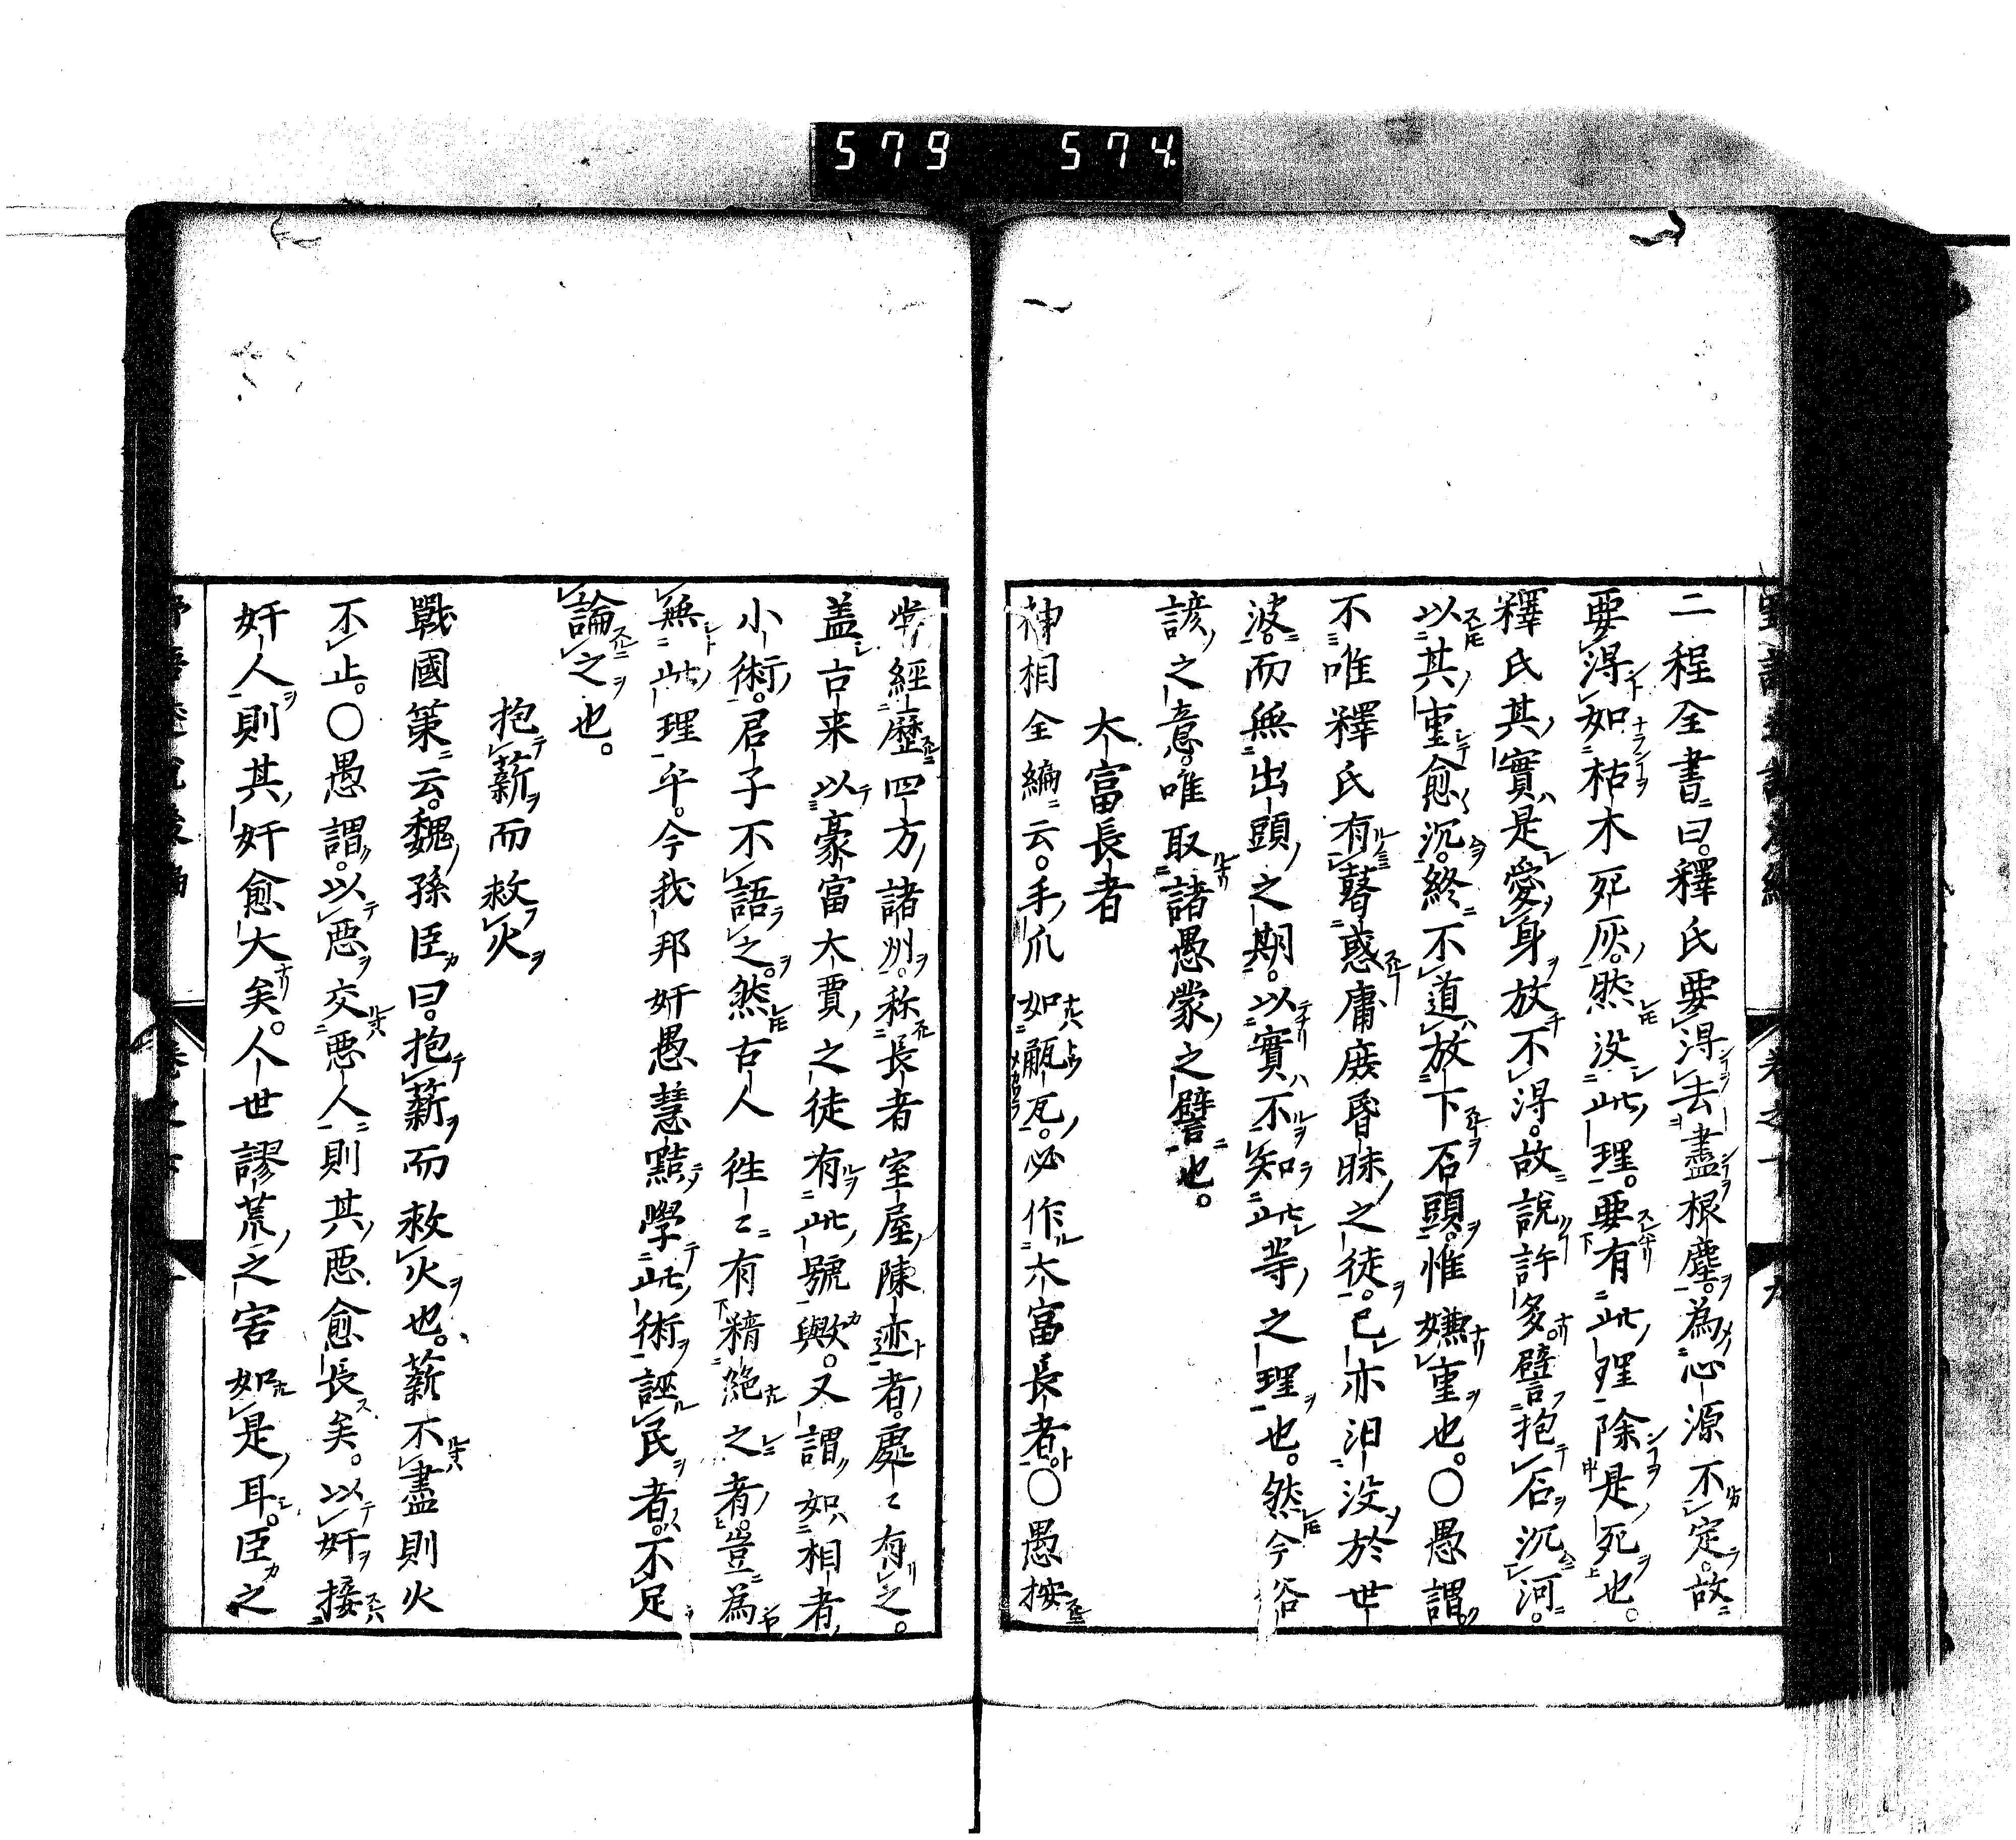 579 574
二程全書曰。釋氏要得去盡根塵。為心源不定。故
要得如枯木死灰。然没此理。要有此理除是死也。
釋氏其實是愛身放不得。故說許多譬抱石沉河。
以其重愈沉。終不道放下石頭。惟嫌重也。〇愚謂
不唯釋氏有瞽惑庸庻昏昧之徒。已亦汨没於世
波。而無出頭之期。以實不知此等之理也。然今俗
諺之意。唯取諸愚蒙之譬也。
大富長者
神相全編云。手爪如瓪瓦。必作大富長者〇愚按
甞經歷四方諸州。称長者室屋陳迹者。處〻有之。
盖古来以豪富大賈之徒有此號歟。又謂如相者
小術。君子不語之。然古人徃〻有精絶之者。豈為
無此理乎。今我邦奸愚慧黠學此術誣民者。不足
論之也。
抱薪而救火
戰國策云。魏孫臣曰。抱薪而救火也。薪不盡則火
不止。〇愚謂。以惡交惡人則其惡愈長矣。以奸接
奸人則其奸愈大矣。人世謬荒之害如是耳。臣之